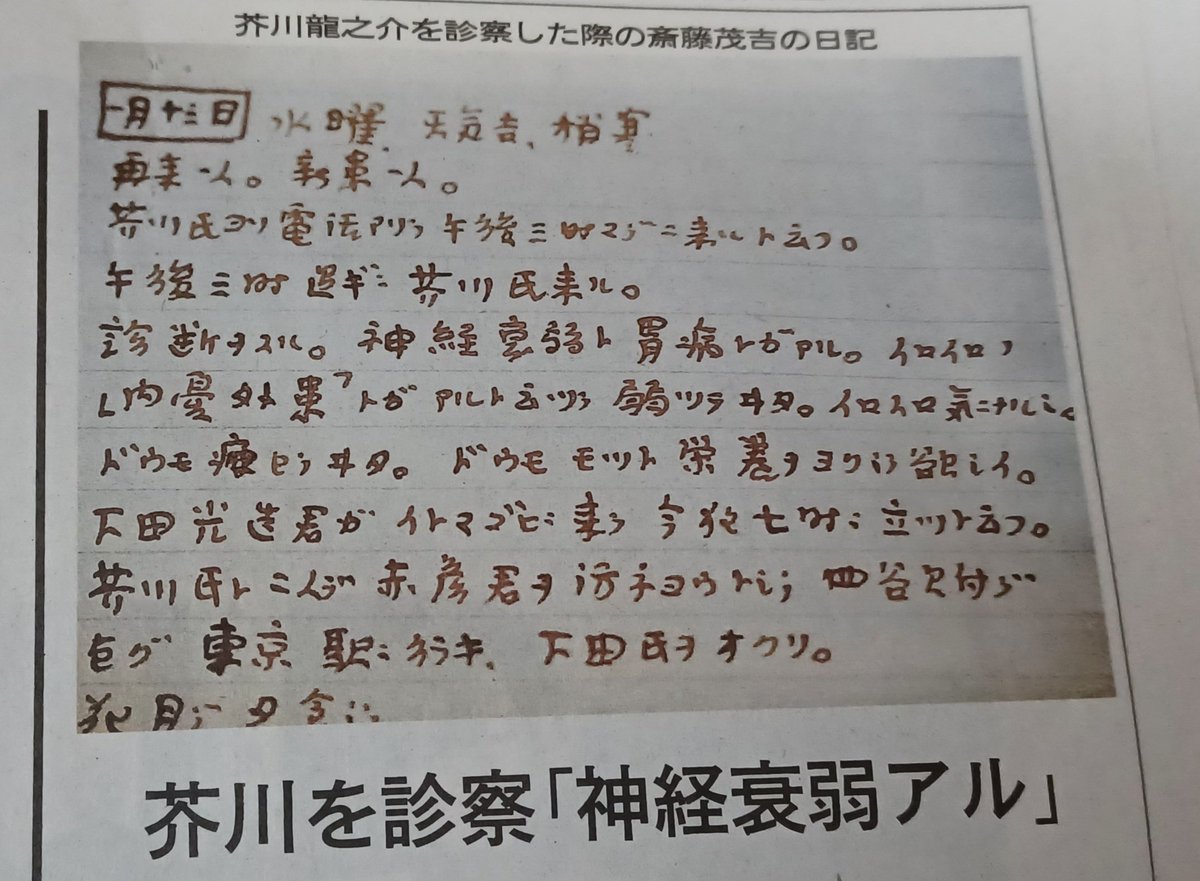 芥川龍之介を診察した際の斎藤茂吉の日記
一月十三日 水曜、天気吉、
再来一人。新患一人。
芥川氏ヨリ電話アリ、午後三時マデニ来ルト云フ。
午後三時過ギニ芥川氏来ル。
診断ヲスル。神経衰弱ト胃病トガアル。イロイロノ
内憂外患トガアルト云ツテ弱ツテヰタ。イロイロ気ニナルシ、
ドウモ痩セテヰタ。ドウモモツト栄養ヲヨクシテ欲シイ。
下田光造君ガイトマゴヒニ来テ今夜七時ニ立ツト云フ。
芥川氏ト二人デ赤彦君ヲ訪ネヨウトシテ四谷見付デ
東京駅ニ行キ、下田氏ヲオクリ。
夕食シ
芥川を診察「神経衰弱アル」